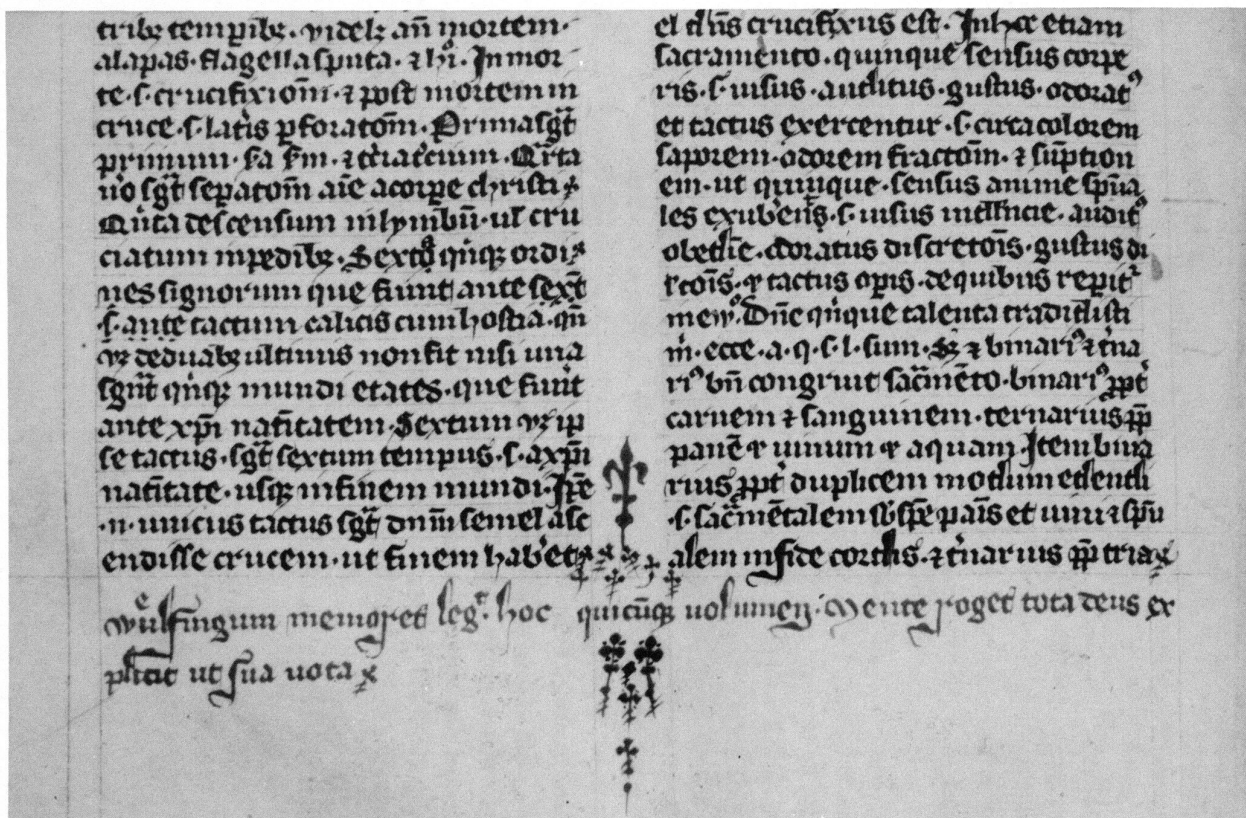 tribꝫ temꝑibꝫ· videlꝫ an̄ mortem·
alapas· flagella sputa· ⁊ hi᷒· In mor
te· s· crucifixiom̄· ⁊ post mortem in
cruce· s· latis ꝑforatom̄· Prima sḡt
primum· sa· ⁊ Q̇rta
ũo sḡt seꝑatom̄ aīe a corꝑe christi
Q̇nta descensum in lymibū· ul᷒ cru
ciatum in pedibꝫ· Sexto q̇nqꝫ ordi
nes signorum que fiunt ante sext̄
·s· ante tactum calicis cum hostia· qn̄
de duabꝫ ultimis non fit nisi una
sgn̄t q̇nqꝫ mundi etates· que fiūt
ante xp̄i natītatem· Sextum ip
se tactus· sḡt sextum tempus· s· a xp̄i
natītate· usqꝫ in finem mundi· Ip̄e
·n· unicus tactus sḡt dn̄m semel asc
endisse crucem· ut finem habet
el dn̄s crucifixus est· In hoc etiam
sacramento· quinque sensus corpo
ris· s· uisus· auditus· gustus· odorat᷒
et tactus exercentur· s· circa colorem
saporem· odorem fractoīm· ⁊ sūption
em· ut quinque· sensus anime spūa
les exub̄ens· s· uisus intell̄ncie· audit᷒
obedīe· odoratus discretoīs· gustus di
l̄coīs· ⁊ tactus oꝑis· de quibus reꝑit᷑
Dn̄e q̇nque talenta tradidisti
m̄· ecce· a· q· s· l· sum· ⁊ binari᷒ ⁊ t̄na
ri᷒ bn̄ congruit sac̄mēto· binari᷒ ꝓpt̄
carnem ⁊ sanguinem· ternarius ꝓp̄
panē ⁊ uinum ⁊ aquam Item bina
rius ꝓpt̄ duplicem modum edendi
·s· sac̄mētalem sb̄ spē pais et uini ⁊ spū
alem in fide cordis· ⁊ t̄narius ꝓp̄ tria
wͤulfingum memoret leg᷒t hoc quicūqꝫ uolumen· Mente roget tota deus ex
pleat ut sua uota